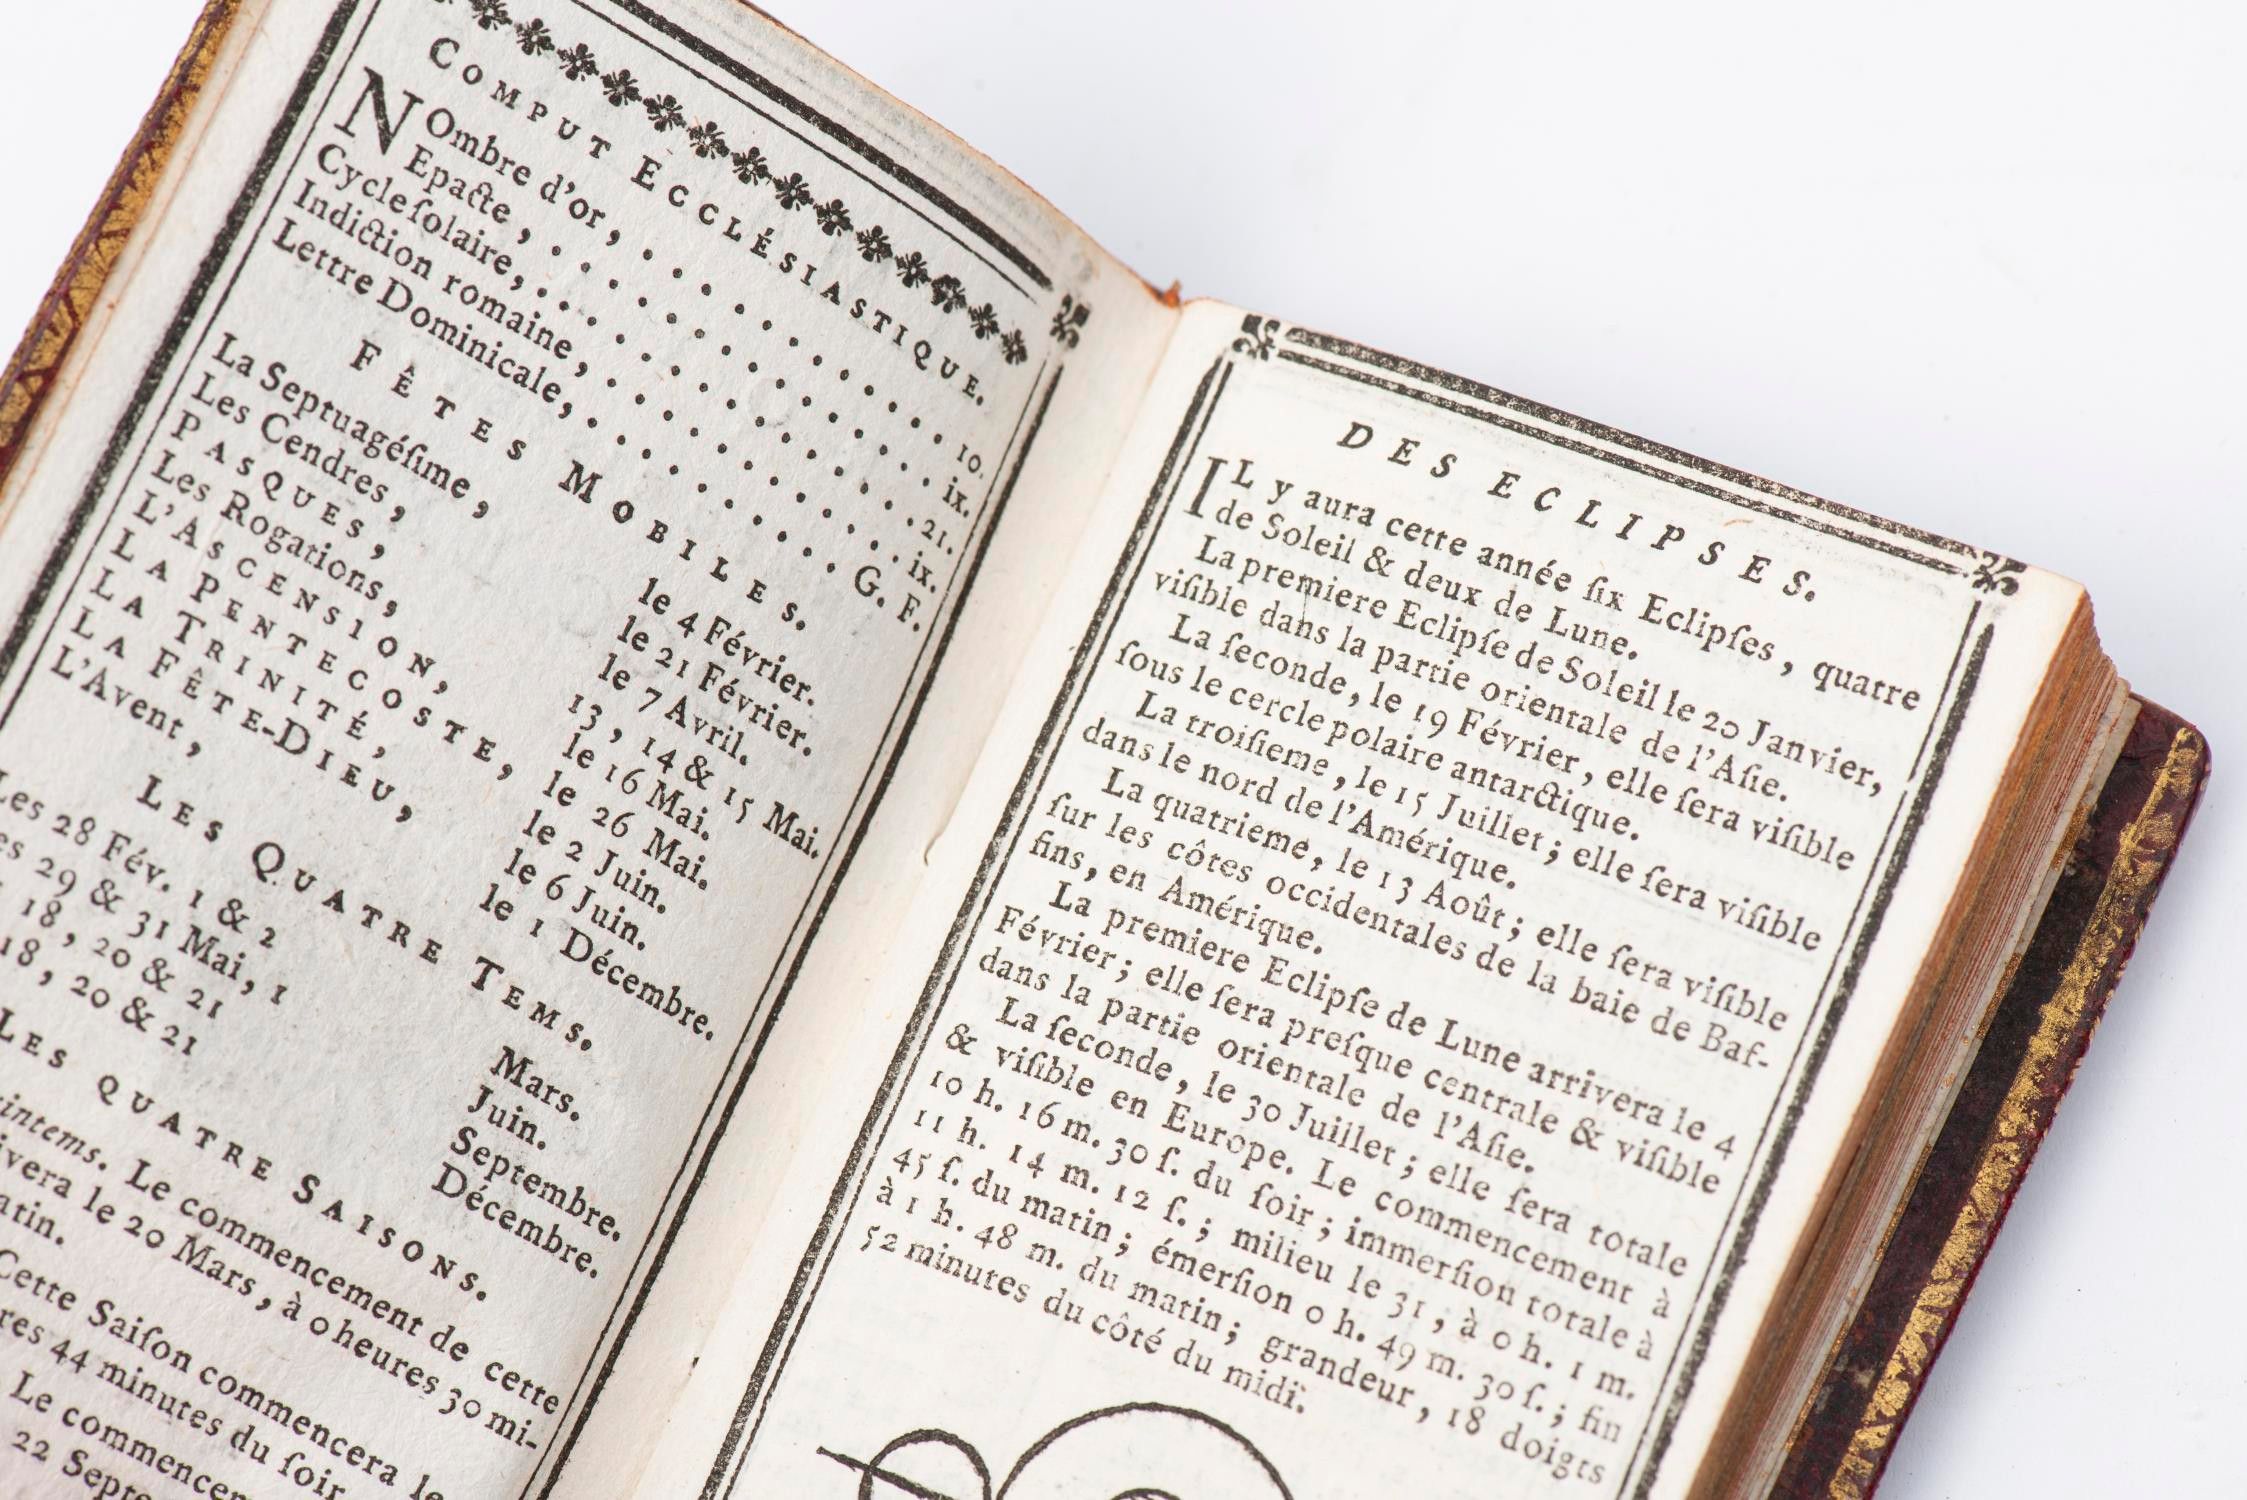 COMPUT ECCLÉSIASTIQUE.
NOmbre d'or, . . . . . . . . . . 10.
Epacte, . . . . . . . . . . . . ix.
Cycle ſolaire, . . . . . . . . . . . 21.
Indiction romaine, . . . . . . . . . . ix.
Lettre Dominicale, . . . . . . . . . G. F.
FÊTES MOBILES.
La Septuagéſime, le 4 Février.
Les Cendres, le 21 Février.
PASQUES, le 7 Avril.
Les Rogations, 13, 14 & 15 Mai.
L'ASCENSION, le 16 Mai.
LA PENTECOSTE, le 26 Mai.
LA TRINITÉ, le 2 Juin.
LA FÊTE-DIEU, le 6 Juin.
L'Avent, le 1 Décembre.
LES QUATRE TEMS.
Les 28 Fév. 1 & 2 Mars.
29 & 31 Mai, 1 Juin.
18, 20 & 21 Septembre.
18, 20 & 21 Décembre.
LES QUATRE SAISONS.
Le commencement de cette
le 20 Mars, à 0 heures 30 mi-
Cette Saiſon commencera le
44 minutes du ſoir
Le
22
DES ECLIPSES.
IL y aura cette année ſix Eclipſes, quatre
de Soleil & deux de Lune.
La premiere Eclipſe de Soleil le 20 Janvier,
viſible dans la partie orientale de l'Aſie.
La ſeconde, le 19 Février, elle ſera viſible
ſous le cercle polaire antarctique.
La troiſieme, le 15 Juillet; elle ſera viſible
dans le nord de l'Amérique.
La quatrieme, le 13 Août; elle ſera viſible
ſur les côtes occidentales de la baie de Baf-
fins, en Amérique.
La premiere Eclipſe de Lune arrivera le 4
Février; elle ſera preſque centrale & viſible
dans la partie orientale de l'Aſie.
La ſeconde, le 30 Juillet; elle ſera totale
& viſible en Europe. Le commencement à
10 h. 16 m. 30 ſ. du ſoir; immerſion totale à
11 h. 14 m. 12 ſ.; milieu le 31, à 0 h. 1 m.
45 ſ. du matin; émerſion 0 h. 49 m. 30 ſ.; fin
à 1 h. 48 m. du matin; grandeur, 18 doigts
52 minutes du côté du midi.